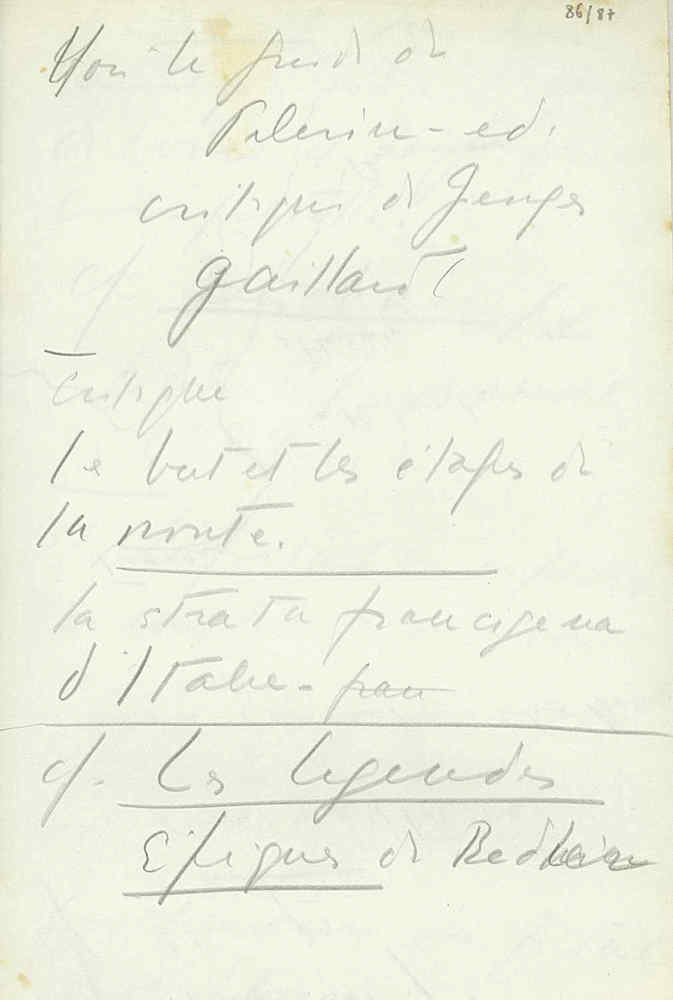 86/87
Voir le guide du
Pelerin - ed.
critique de Georges
Gaillard
critique
le but et les étapes de
la route.
la strata francigena
d'Italie - fran
cf. Les légendes
Epiques de Bédier